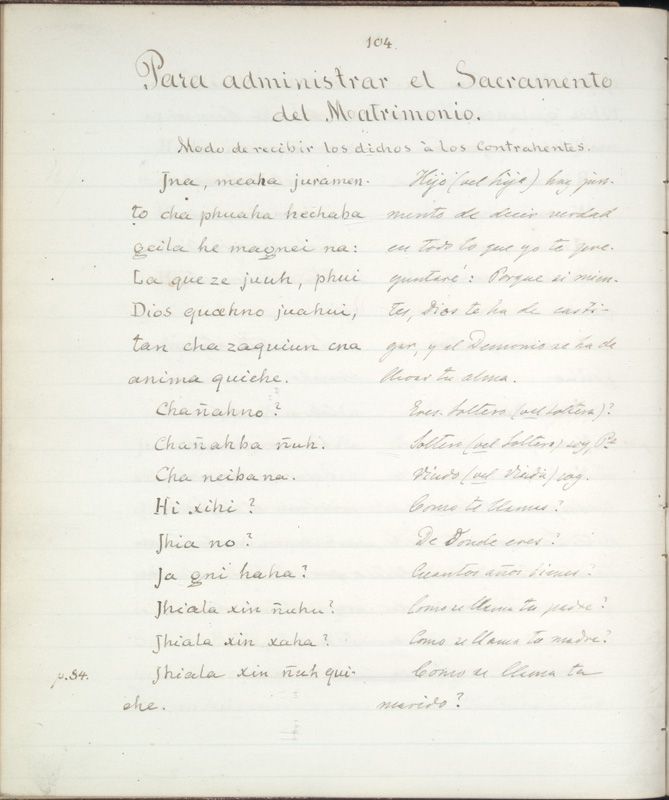 104.
Para administrar el Sacramento
del Matrimonio.
Modo de recibir los dichos à los Contrahentes.
Jna, meaha juramen- Hijo (vel hija) haz jura-
to cha phuaha hechaba mento de decir verdad
geila he magnei na: en todo lo que yo te pre-
La que ze juuh, phui guntaré: Porque si mien-
Dios quæhno juahui, tes, Dios te ha de casti-
tan cha zaquiun cna gar, y el Demonio se ha de
anima quiche. llevar tu alma.
Chañahno? Eres Soltero (vel Soltera)?
Chañahba ñuh. Soltero (vel Soltera) soy, Pe
Cha neibana. Viudo (vel Viuda) soy.
Hi xihi? Como te llamas?
Jhia no? De Donde eres?
Ja gni haha? Cuantos años tienes?
Jhiala xin ñuhu? Como se llama tu padre?
Jhiala xin xaha? Como se llama tu madre?
p.34. Jhiala xin ñuh qui- Como se llama tu
che. marido?